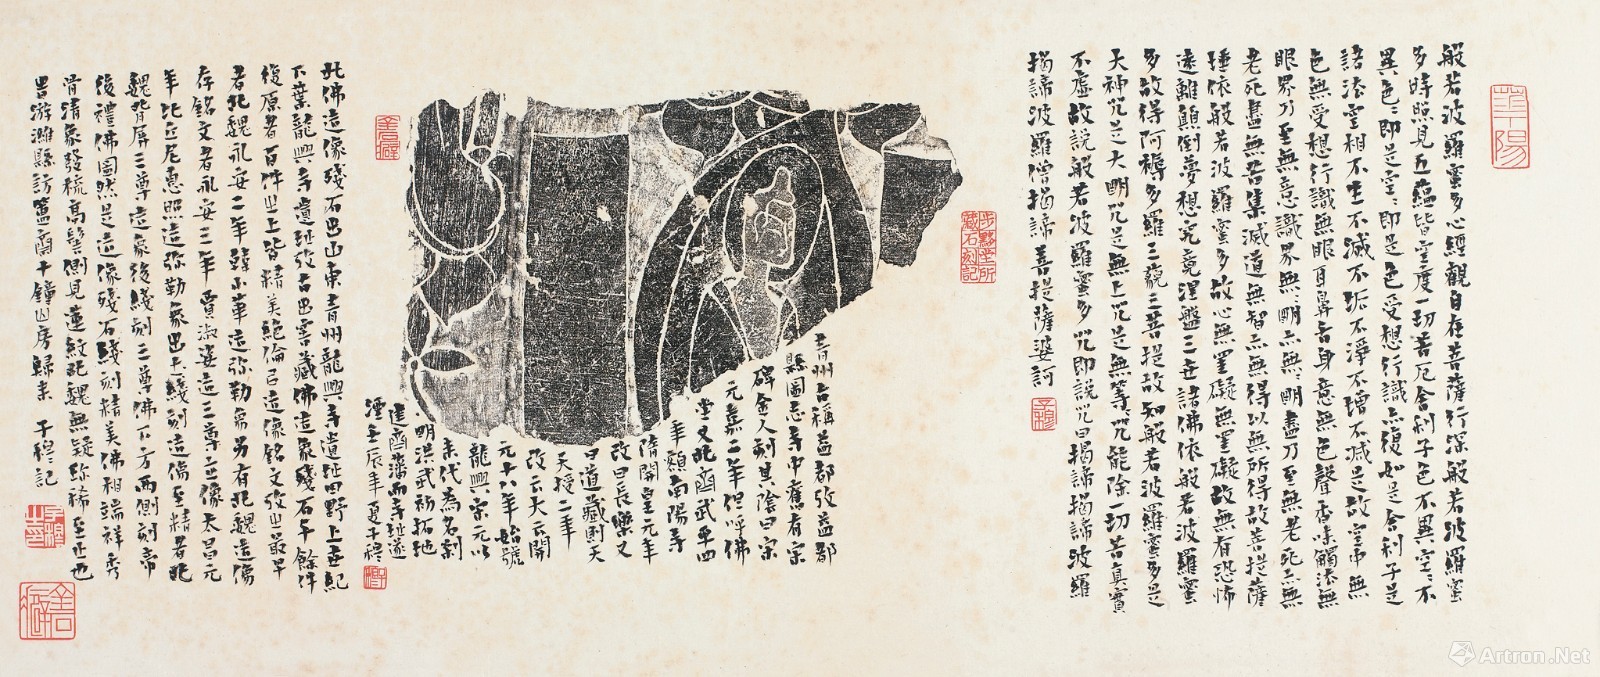 華陽
般若波羅蜜多心經觀自在菩薩行深般若波羅蜜
多時照見五蘊皆空度一切苦厄舍利子色不異空：不
異色：即是空：即是色受想行識亦復如是舍利子是
諸法空相不生不滅不垢不淨不增不減是故空中無
色無受想行識無眼耳鼻舌身意無色聲香味觸法無
眼界乃至無意識界無：明亦無：明盡乃至無老死亦無
老死盡無苦集滅道無智亦無得以無所得故菩提薩
埵依般若波羅蜜多故心無罣礙無罣礙故無有恐怖
遠離顛倒夢想究竟涅盤三世諸佛依般若波羅蜜
多故得阿耨多羅三藐三菩提故知般若波羅蜜多是
大神咒是大明咒是無上咒是無等：咒能除一切苦真實
不虛故說般若波羅蜜多咒即說咒曰揭諦揭諦波羅
揭諦波羅僧揭諦菩提薩婆訶
子穆
藏石刻記
青州古稱益都攷益都
縣圖志寺中舊有宋
碑金人刻其陰曰宋
元嘉二年但呼佛
堂又北齊武平四
年額南陽寺
隋開皇元年
改曰長樂又
曰道藏則天
天授二年
改云大云開
元十八年始號
龍興宋元以
來代為名刹
明洪武初拓地
建齊藩而寺址遂
湮壬辰年夏子穆
此佛造像殘石出山東青州龍興寺遺址田野上世紀
末龍興寺遺址攷古出窖藏佛造象殘石千餘件
復原者百件之上皆精美絕倫以造像銘文攷之最早
者北魏永安二年韓小華造彌勒象另有北魏造像
存銘文者永安三年賈淑姿造三尊立像太昌元
年比丘尼惠照造彌勒象出土綫刻造像至精者北
魏背屏三尊造象後綫刻三尊佛下方兩側刻帝
後禮佛圖然是造像殘石綫刻精美佛相端祥秀
骨清象發梳高髻側見蓮紋北魏無疑珍稀至也
曾游濰縣訪簠齋十鐘山房歸來 子穆記
Artron.Net